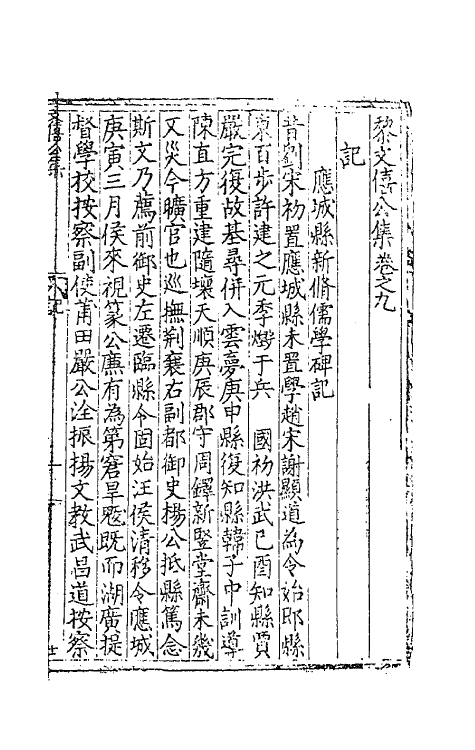 黎文僖公集卷之九
記
應城縣新脩儒學碑記
昔劉宋初置應城縣未置學趙宋謝顯道為令始即縣
東百步許建之元季燬于兵 國初洪武己酉知縣賈
嚴完復故基尋併入雲夢庚申縣復知縣韓子中訓導
陳直方重建隨壞天順庚辰郡守周鐸新豎堂齋未幾
又災今曠官也巡撫荊襄右副都御史楊公抵縣篤念
斯文乃薦前御史左遷臨縣令固始汪侯清移令應城
庚寅三月侯來視篆公廉有為第窘旱歴既而湖廣提
督學校按察副使莆田嚴公洤振揚文教武昌道按察